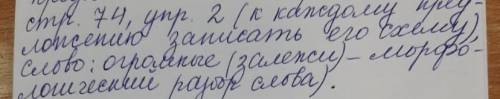 стр. 74, упр. 2 (к каждому пред-
ложению записать его схему),
слово: огромные (залежи) - морфо-
логический разбор слова).